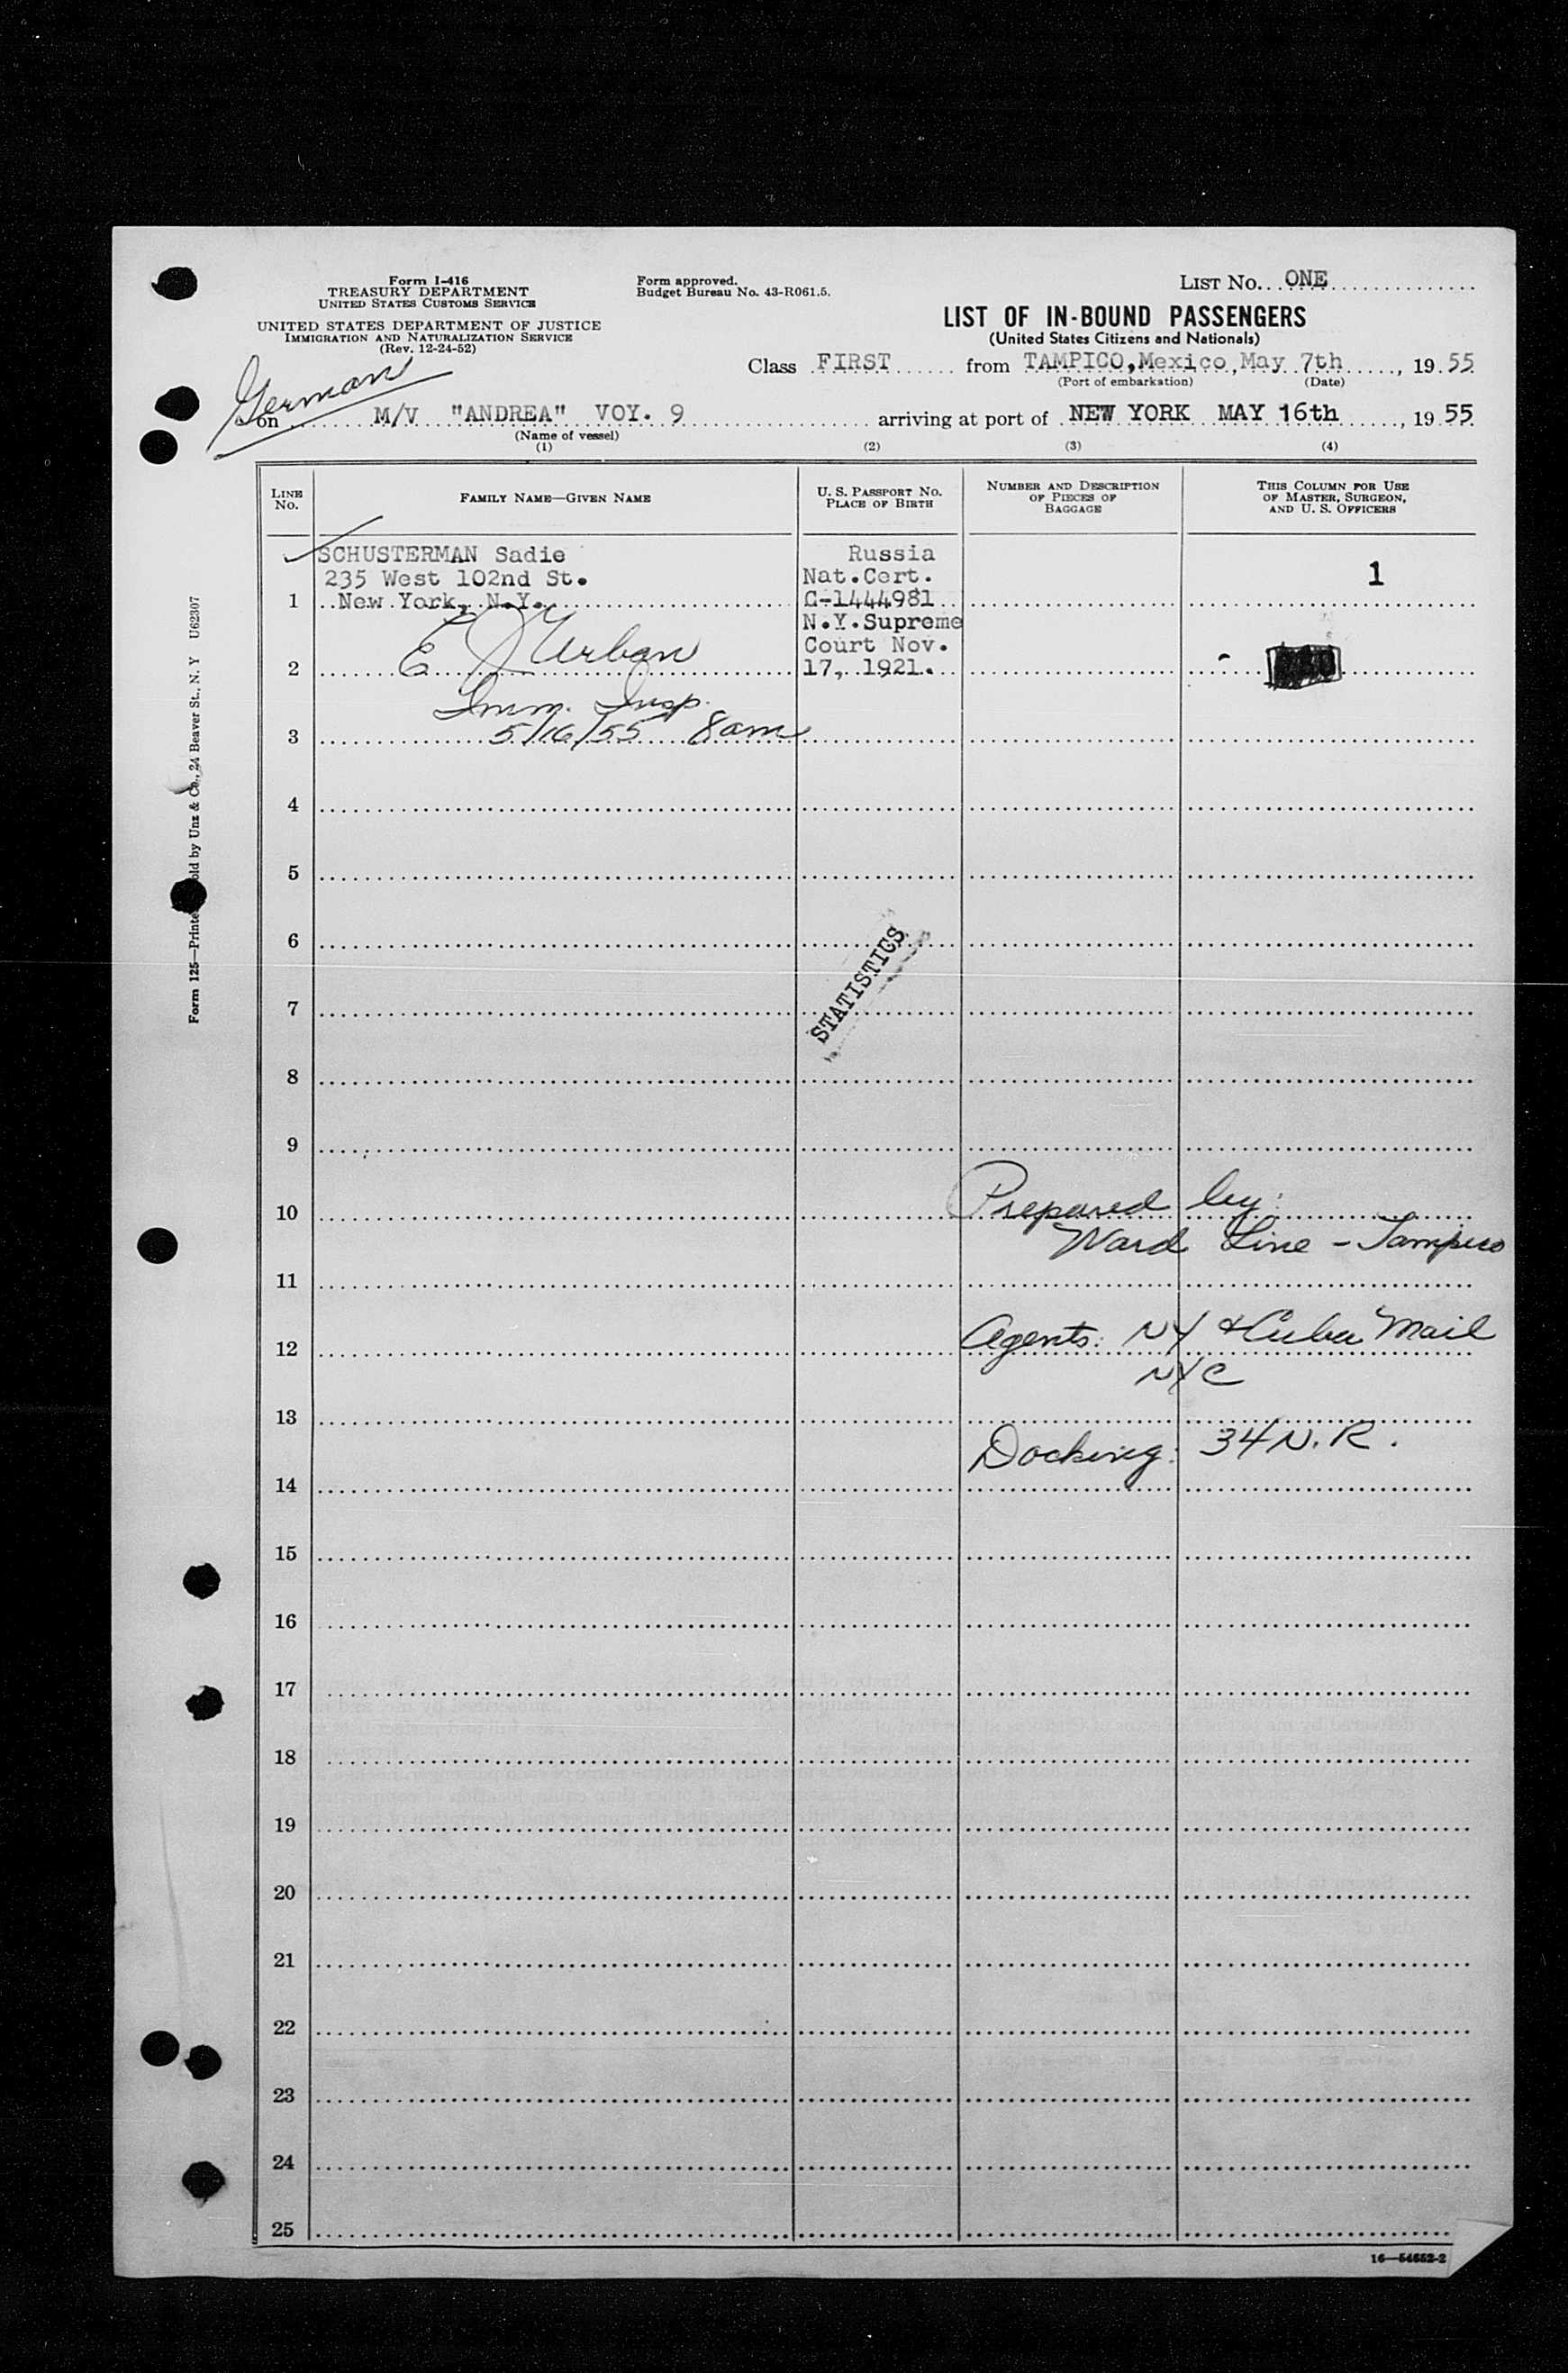 Form I-416
TREASURY DEPARTMENT
UNITED STATES CUSTOMS SERVICE
UNITED STATES DEPARTMENT OF JUSTICE
IMMIGRATION AND NATURALIZATION SERVICE
(Rev. 12-24-52)
Form approved.
Budget Bureau No. 43-R061.5.
LIST NO. ONE
LIST OF IN-BOUND PASSENGERS
(United States Citizens and Nationals)
Class FIRST from TAMPICO, Mexico, May 7th, 19 55
(Port of embarkation) (Date)
German
on M/V "ANDREA" VOY. 9 arriving at port of NEW YORK MAY 16th, 19 55
(Name of vessel)
(1) (2) (3) (4)
LINE NO.
FAMILY NAME—GIVEN NAME
U. S. PASSPORT NO.
PLACE OF BIRTH
NUMBER AND DESCRIPTION
OF PIECES OF
BAGGAGE
THIS COLUMN FOR USE
OF MASTER, SURGEON,
AND U. S. OFFICERS
SCHUSTERMAN Sadie Russia
235 West 102nd St. Nat.Cert. 1
1 New York, N.Y. C-1444981
N.Y.Supreme
E J Urban Court Nov.
2 17, 1921.
Imm. Insp.
3 5/16/55 8am
4
5
6
STATISTICS
7
8
9
10 Prepared by:
Ward Line - Tampico
11
12 Agents: NY & Cuba Mail
NYC
13
Docking: 34 N.R.
14
15
16
17
18
19
20
21
22
23
24
25
16—54552-2
Form 125—Printe old by Unz & Co., 24 Beaver St., N. Y U62307